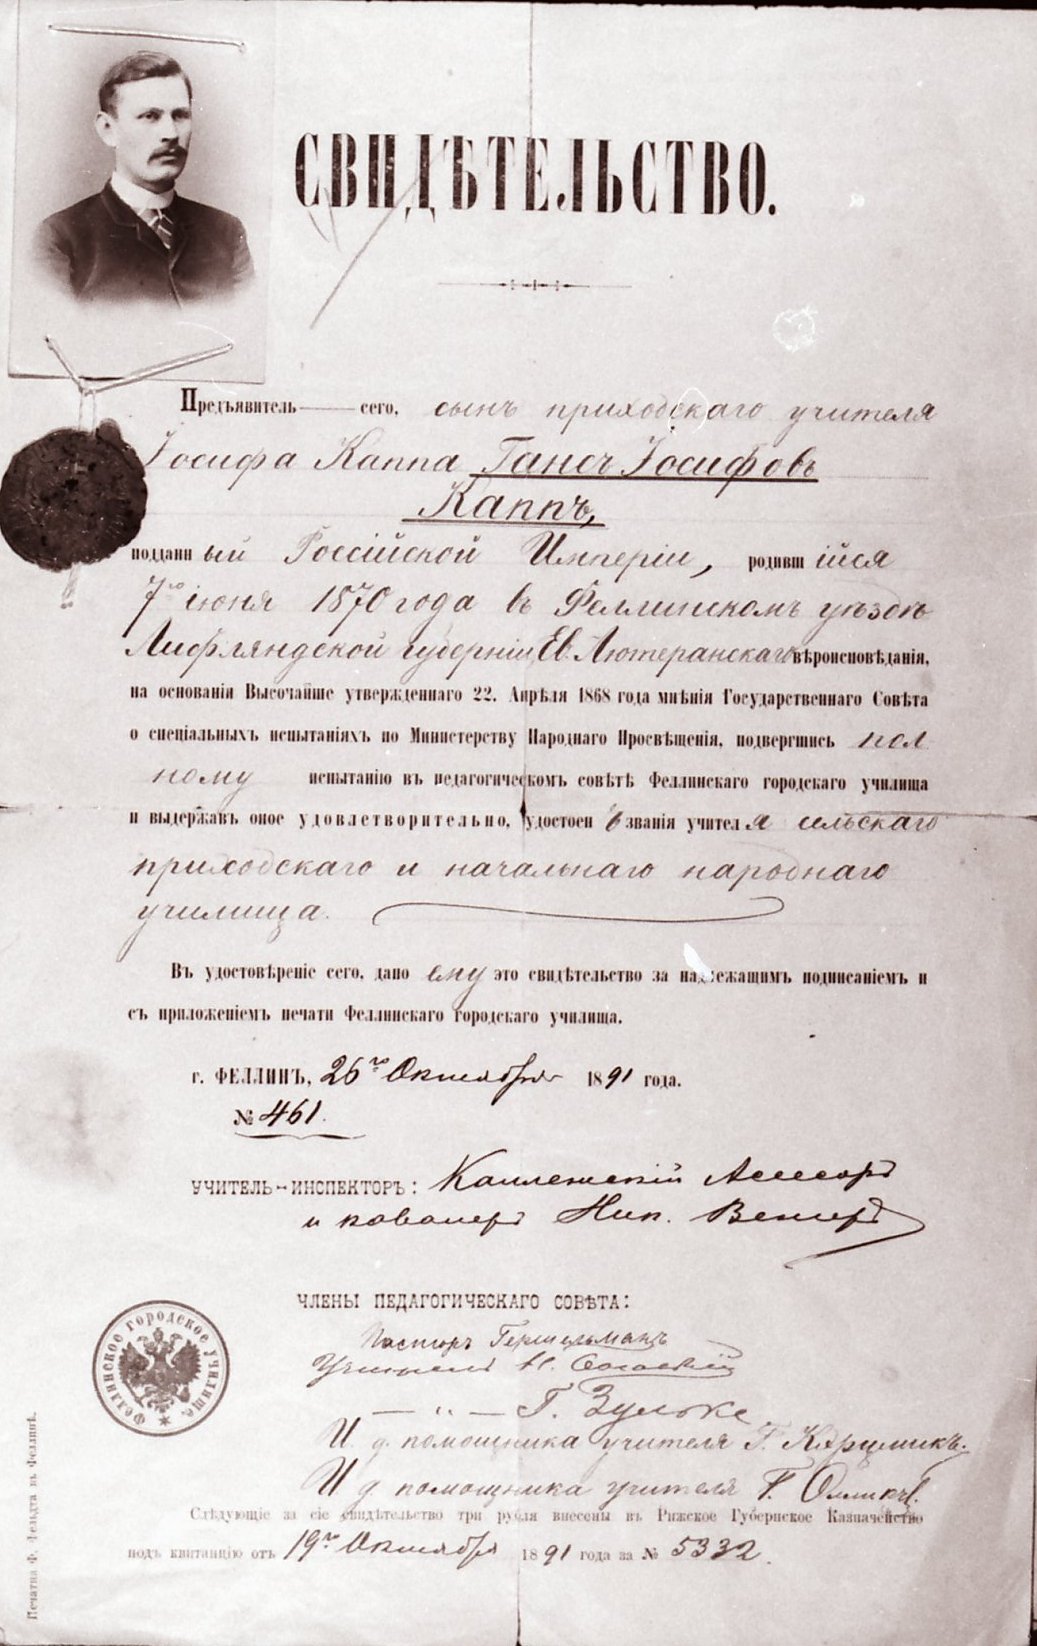 СВИДѢТЕЛЬСТВО.
Предъявитель сего, сынъ приходскаго учителя
Іосифа Каппа Гансъ Іосифовъ
Каппъ,
подданный Россійской Имперіи, родившійся
7го іюня 1870 года въ Феллинскомъ уѣздѣ
Лифляндской губерніи, Ев. Лютеранскаго вѣроисповѣданія,
на основаніи Высочайше утвержденнаго 22. Апрѣля 1868 года мнѣнія Государственнаго Совѣта
о спеціальныхъ испытаніяхъ по Министерству Народнаго Просвѣщенія, подвергшись пол
ному испытанію въ педагогическомъ совѣтѣ Феллинскаго городскаго училища
и выдержавъ оное удовлетворительно, удостоенъ званія учителя сельскаго
приходскаго и начальнаго народнаго
училища.
Въ удостовѣреніе сего, дано ему это свидѣтельство за надлежащимъ подписаніемъ и
съ приложеніемъ печати Феллинскаго городскаго училища.
г. ФЕЛЛИНЪ, 26го Октября 1891 года.
№ 461.
УЧИТЕЛЬ-ИНСПЕКТОРЪ: Коллежскій Ассесоръ
и кавалеръ Ник.
ЧЛЕНЫ ПЕДАГОГИЧЕСКАГО СОВѢТА:
Пасторъ Гершельманъ
Учитель
— " — Г. Зульке
И. д. помощника учителя Г.
И д помощника учителя Г.
Слѣдующіе за сіе свидѣтельство три рубля внесены въ Рижское Губернское Казначейство
подъ квитанцію отъ 19го Октября 1891 года за № 5332.
Феллинское городское училище.
Печатня Ф. Фельдта въ Феллинѣ.